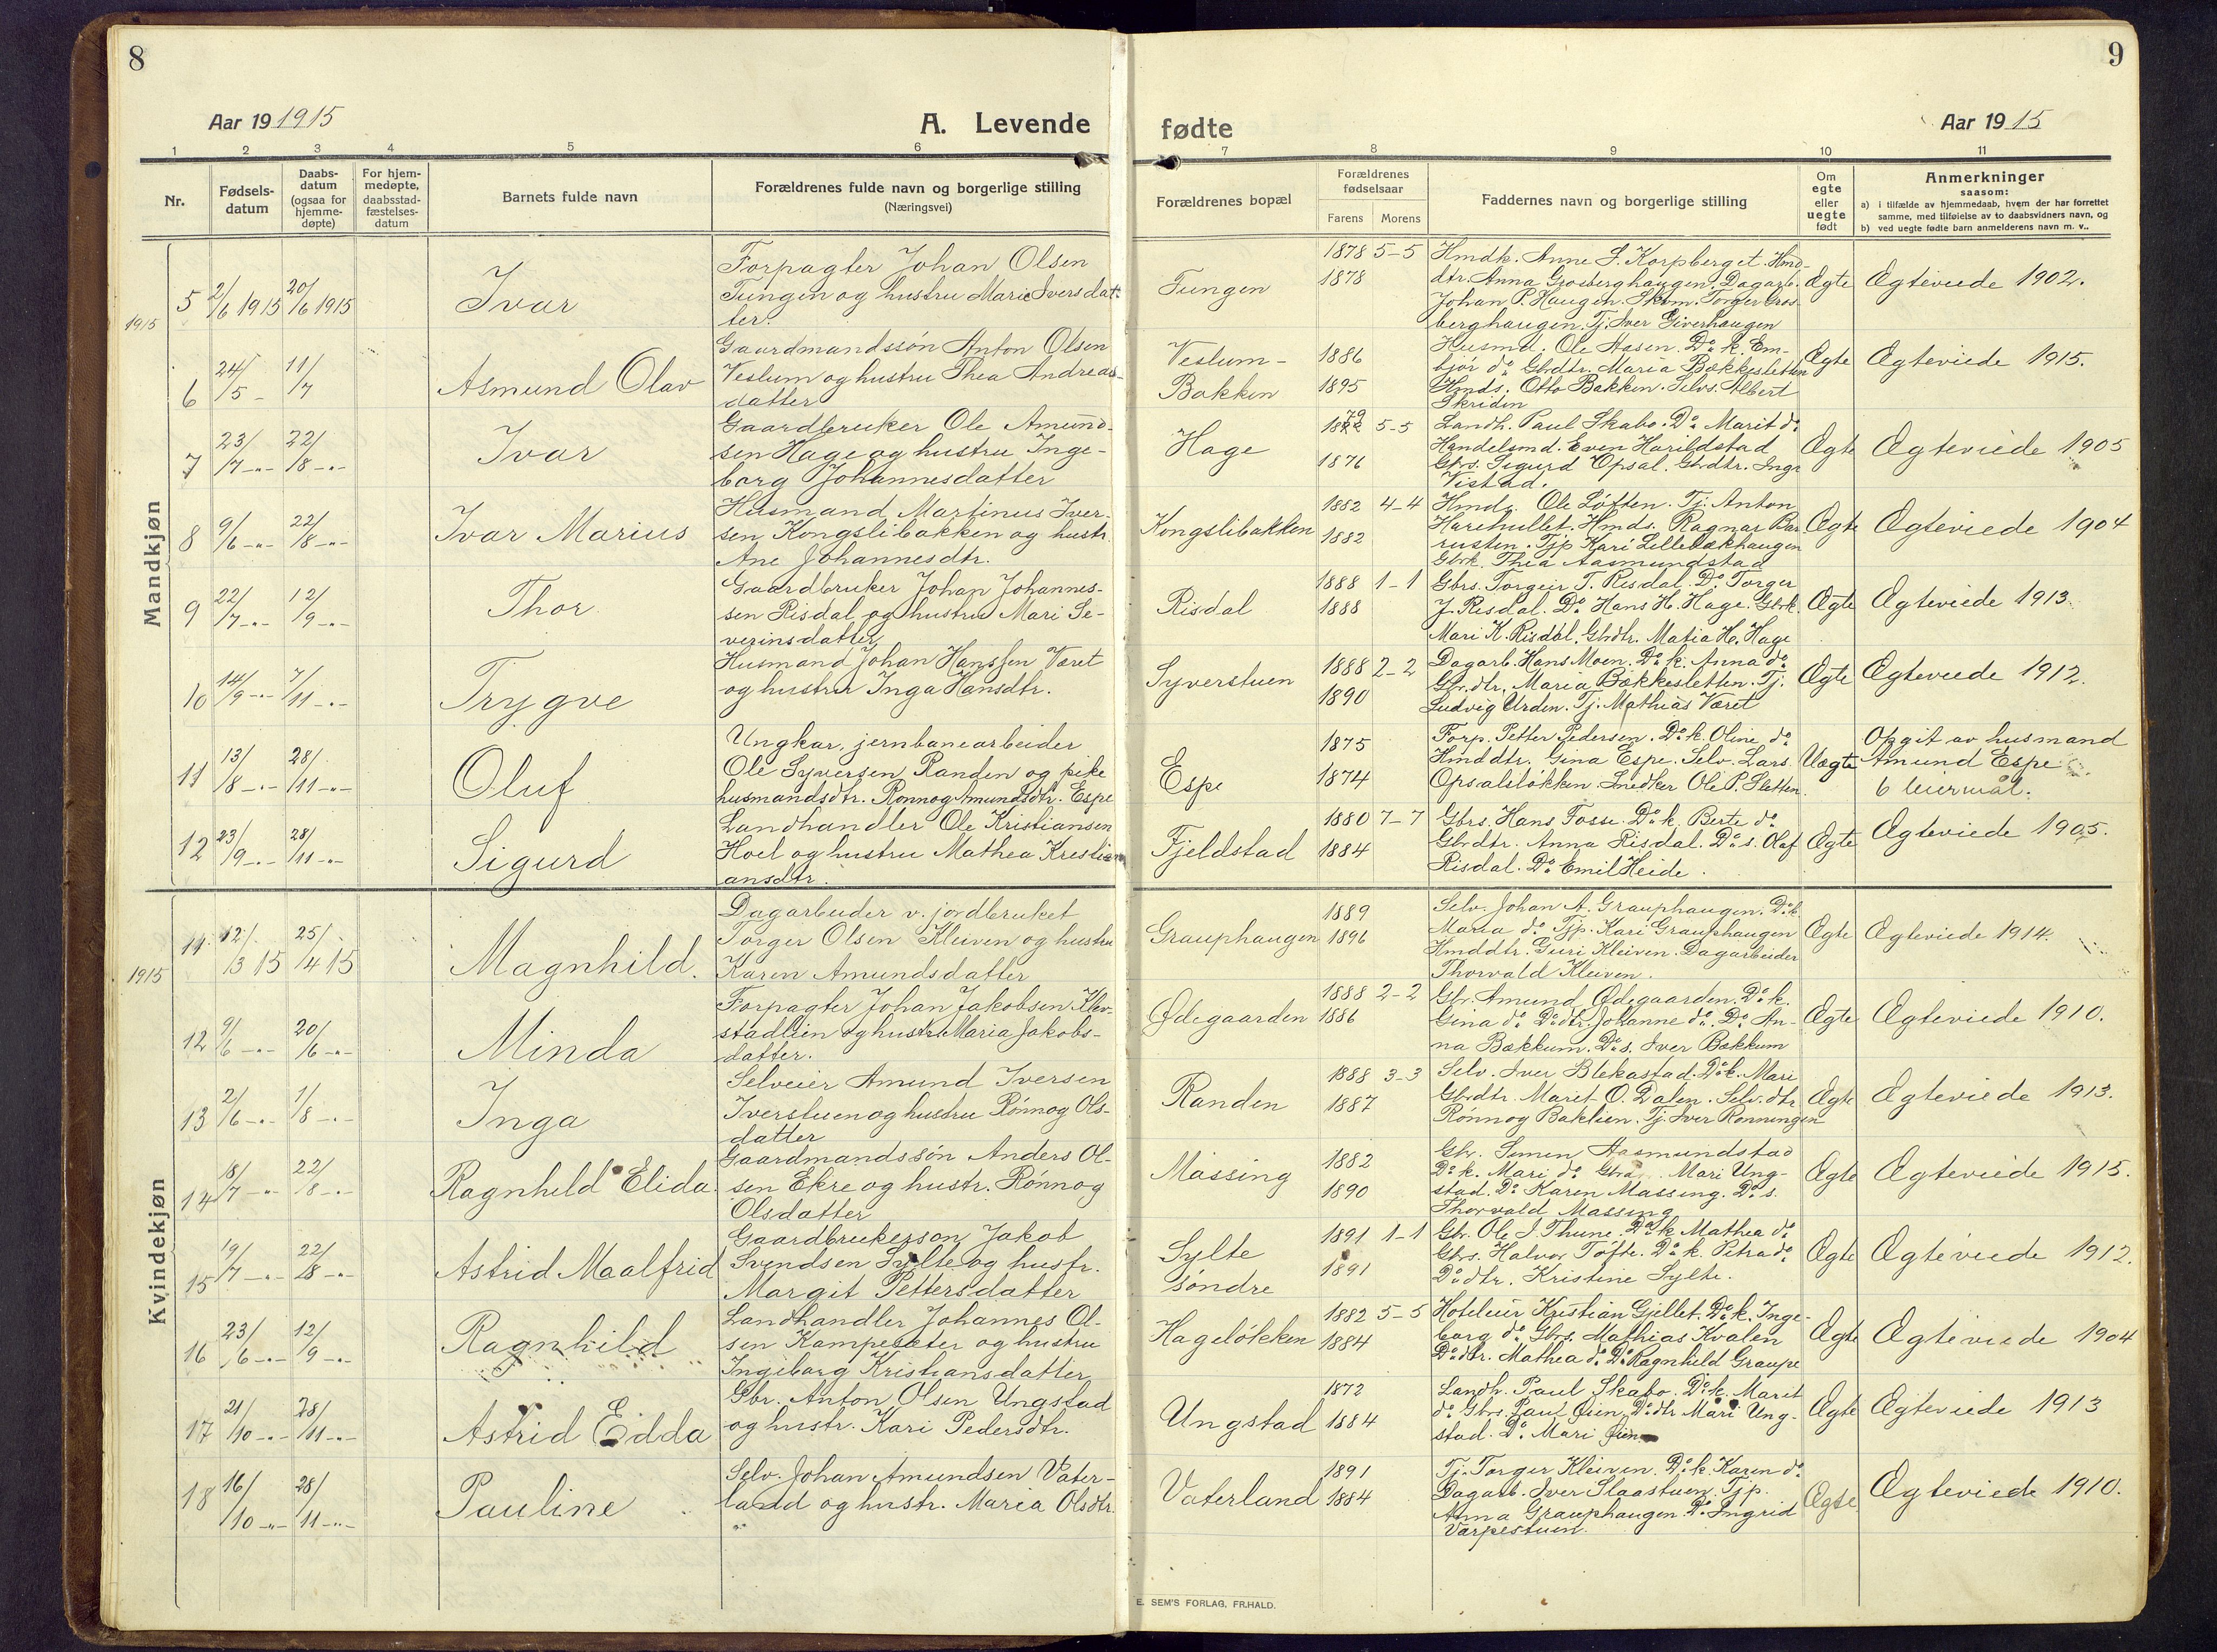 8
Aar 19 1915
A. Levende
1 2 3 4 5 6
Nr.
Fødsels-
datum
Daabs-
datum
(ogsaa for
hjemme-
døpte)
For hjem-
medøpte,
daabsstad-
fæstelses-
datum
Barnets fulde navn
Forældrenes fulde navn og borgerlige stilling
(Næringsvei)
Mandkjøn
1915
5 2/6 1915 20/6 1915 Ivar
Forpagter Johan Olsen
Tungen og hustru Marie Iversdat-
ter.
6 24/5 - 11/7 Asmund Olav
Gaardmandssøn Anton Olsen
Veslum og hustru Thea Andreas-
datter
7 23/7 -"- 22/8 -"- Ivar
Gaardbruker Ole Amund-
sen Hage og hustru Inge-
borg Johannesdatter
8 9/6 -"- 22/8 -"- Ivar Marius
Husmand Martinus Iver-
sen Kongslibakken og hustr.
Ane Johannesdtr.
9 22/7 -"- 12/9 -"- Thor
Gaardbruker Johan Johannes-
sen Risdal og hustru Mari Se-
verinsdatter
10 14/9 -"- 7/11 -"- Trygve
Husmand Johan Hanssen Været
og hustru Inga Hansdtr.
11 13/8 -"- 28/11 -"- Oluf
Ungkar, jernbanearbeider
Ole Syversen Randen og pike
husmandsdtr. Rønnog Amundsdtr. Espe
12 23/9 -"- 28/11 -"- Sigurd
Landhandler Ole Kristiansen
Hoel og hustru Mathea Kristi-
ansdtr.
Kvindekjøn
1915
11 12/3 15 25/4 15 Magnhild.
Dagarbeider v. jordbruket
Torger Olsen Kleiven og hustru
Karen Amundsdatter
12 9/6 -"- 20/6 -"- Minda
Forpagter Johan Jakobsen Klev-
stadlien og hustr. Maria Jakobs-
datter.
13 2/6 -"- 1/8 -"- Inga
Selveier Amund Iversen
Iverstuen og hustru Rønnog Ols-
datter
14 18/7 -"- 22/8 -"- Ragnhild Elida
Gaardmandssøn Anders Ol-
sen Ekre og hustr. Rønnog
Olsdatter
15 19/7 -"- 22/8 -"- Astrid Maalfrid
Gaardbrukerson Jakob
Svendsen Sylte og hustr.
Margit Pettersdatter
16 23/6 -"- 12/9 -"- Ragnhild
Landhandler Johannes Ol-
sen Kampesæter og hustru
Ingeborg Kristiansdatter
17 21/10 -"- 28/11 -"- Astrid Edda
Gbr. Anton Olsen Ungstad
og hustr. Kari Pedersdtr.
18 16/10 -"- 28/11 -"- Pauline
Selv. Johan Amundsen Vater-
land og hustr. Maria Olsdtr.
9
fødte
Aar 19 15
7 8 9 10 11
Forældrenes bopæl
Forældrenes
fødselsaar
Farens Morens
Faddernes navn og borgerlige stilling
Om
egte
eller
uegte
født
Anmerkninger
saasom:
a) i tilfælde av hjemmedaab, hvem der har forrettet
samme, med tilføielse av to daabsvidners navn, og
b) ved uegte fødte barn anmelderens navn m. v..
Tungen
1878 5-5
1878
Hmdk. Anne S. Korpberget. Hmd-
dtr. Anna Grosberghaugen. Dagarb.
Johan P. Haugen. Skom. Torger Gros-
berghaugen. Tj. Iver Giverhaugen
Ægte Ægteviede 1902.
Veslum-
Bakken
1886
1895
Husmd. Ole Aasen. Do k. Em-
bjør do Gbrdtr. Maria Bækkesletten
Hmds. Otto Bakken. Selvs. Albert
Skriden
Ægte Ægteviede 1915.
Hage
1879 5-5
1876
Landh. Paul Skabo. Do Marit do
Handelsmd. Even Harildstad
Gbrs. Sigurd Opsal. Gbrdtr. Inga
Vistad.
Ægte Ægteviede 1905
Kongslibakken
1882 4-4
1882
Hmd. Ole Løften. Tj. Anton
Harehullet. Hmds. Ragnar Bar-
rusten. Tjp Kari Lillebækhaugen
Gbrk. Thea Aasmundstad
Ægte Ægteviede 1904
Risdal
1888 1-1
1888
Gbrs. Torgeir T. Risdal. Do Torger
J. Risdal. Do Hans H. Hage. Gbrk.
Mari K. Risdal. Gbrdtr. Matia H. Hage
Ægte Ægteviede 1913.
Syverstuen
1888 2-2
1890
Dagarb. Hans Moen. Do k. Anna do
Gbrdtr. Maria Bækkesletten. Tj.
Ludvig Urden. Tj. Mathias Været
Ægte Ægteviede 1912.
Espe
1875
1874
Forp. Petter Pedersen. Do k. Oline do
Hmddtr. Gina Espe. Selv. Lars
Opsalsløkken. Snedker Ole P. Sletten.
Uægte
Opgit av husmand
Amund Espe
6 leiermål.
Fjeldstad
1880 7-7
1884
Gbrs. Hans Fosse. Do k. Berte do
Gbrdtr. Anna Risdal. Do s. Olaf
Risdal. Do Emil Heide.
Ægte Ægteviede 1905.
Grauphaugen
1889
1896
Selv. Johan A. Grauphaugen. Do k.
Maria do Tjp. Kari Grauphaugen
Hmddtr. Guri Kleiven. Dagarbeider
Thorvald Kleiven.
Ægte Ægteviede 1914.
Ødegaarden
1888 2-2
1886
Gbr. Amund Ødegaarden. Do k.
Gina do Do dtr. Johanne do. Do An-
na Bækkum. Do s. Iver Bækkum
Ægte Ægteviede 1910.
Randen
1888 3-3
1887
Selv. Iver Blekastad. Do k. Mari
Gbrdtr. Marit O. Dalen. Selv. dtr.
Rønnog Baklien. Tj. Iver Rønningen
Ægte Ægteviede 1913.
Massing
1882
1890
Gbr. Simen Aasmundstad
Do k. Mari do Gbr. Mari Ung-
stad. Do Karen Massing. Do s.
Thorvald Massing
Ægte Ægteviede 1915.
Sylte
søndre
1891 1-1
1891
Gbr. Ole J. Thune. Do k. Mathea do
Gbrs. Halvor Tofte. Do k. Petra do
Do dtr. Kristine Sylte.
Ægte Ægteviede 1912.
Hageløkken
1882 5-5
1884
Hoteleier Kristian Gjillet. Do k. Inge-
borg do Gbrs. Mathias Kvalen
Do dtr. Mathea do Do Ragnhild Graupe
Ægte Ægteviede 1904
Ungstad
1872
1884
Landh. Paul Skabo. Do k. Marit
do Gbrs. Paul Øien Do dtr Mari Ung-
stad. Do Mari Øien
Ægte Ægteviede 1913
Vaterland
1891
1884
Tj. Torger Kleiven. Do k. Karen do
Dagarb. Iver Slaastuen. Tjp.
Anna Grauphaugen. Do Ingrid
Varpestuen.
Ægte Ægteviede 1910.
E. SEM'S FORLAG, FR.HALD.